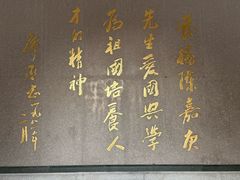 发扬陈嘉庚
先生爱国兴学
为祖国培养人
才的精神
廖承志一九八一年
二月